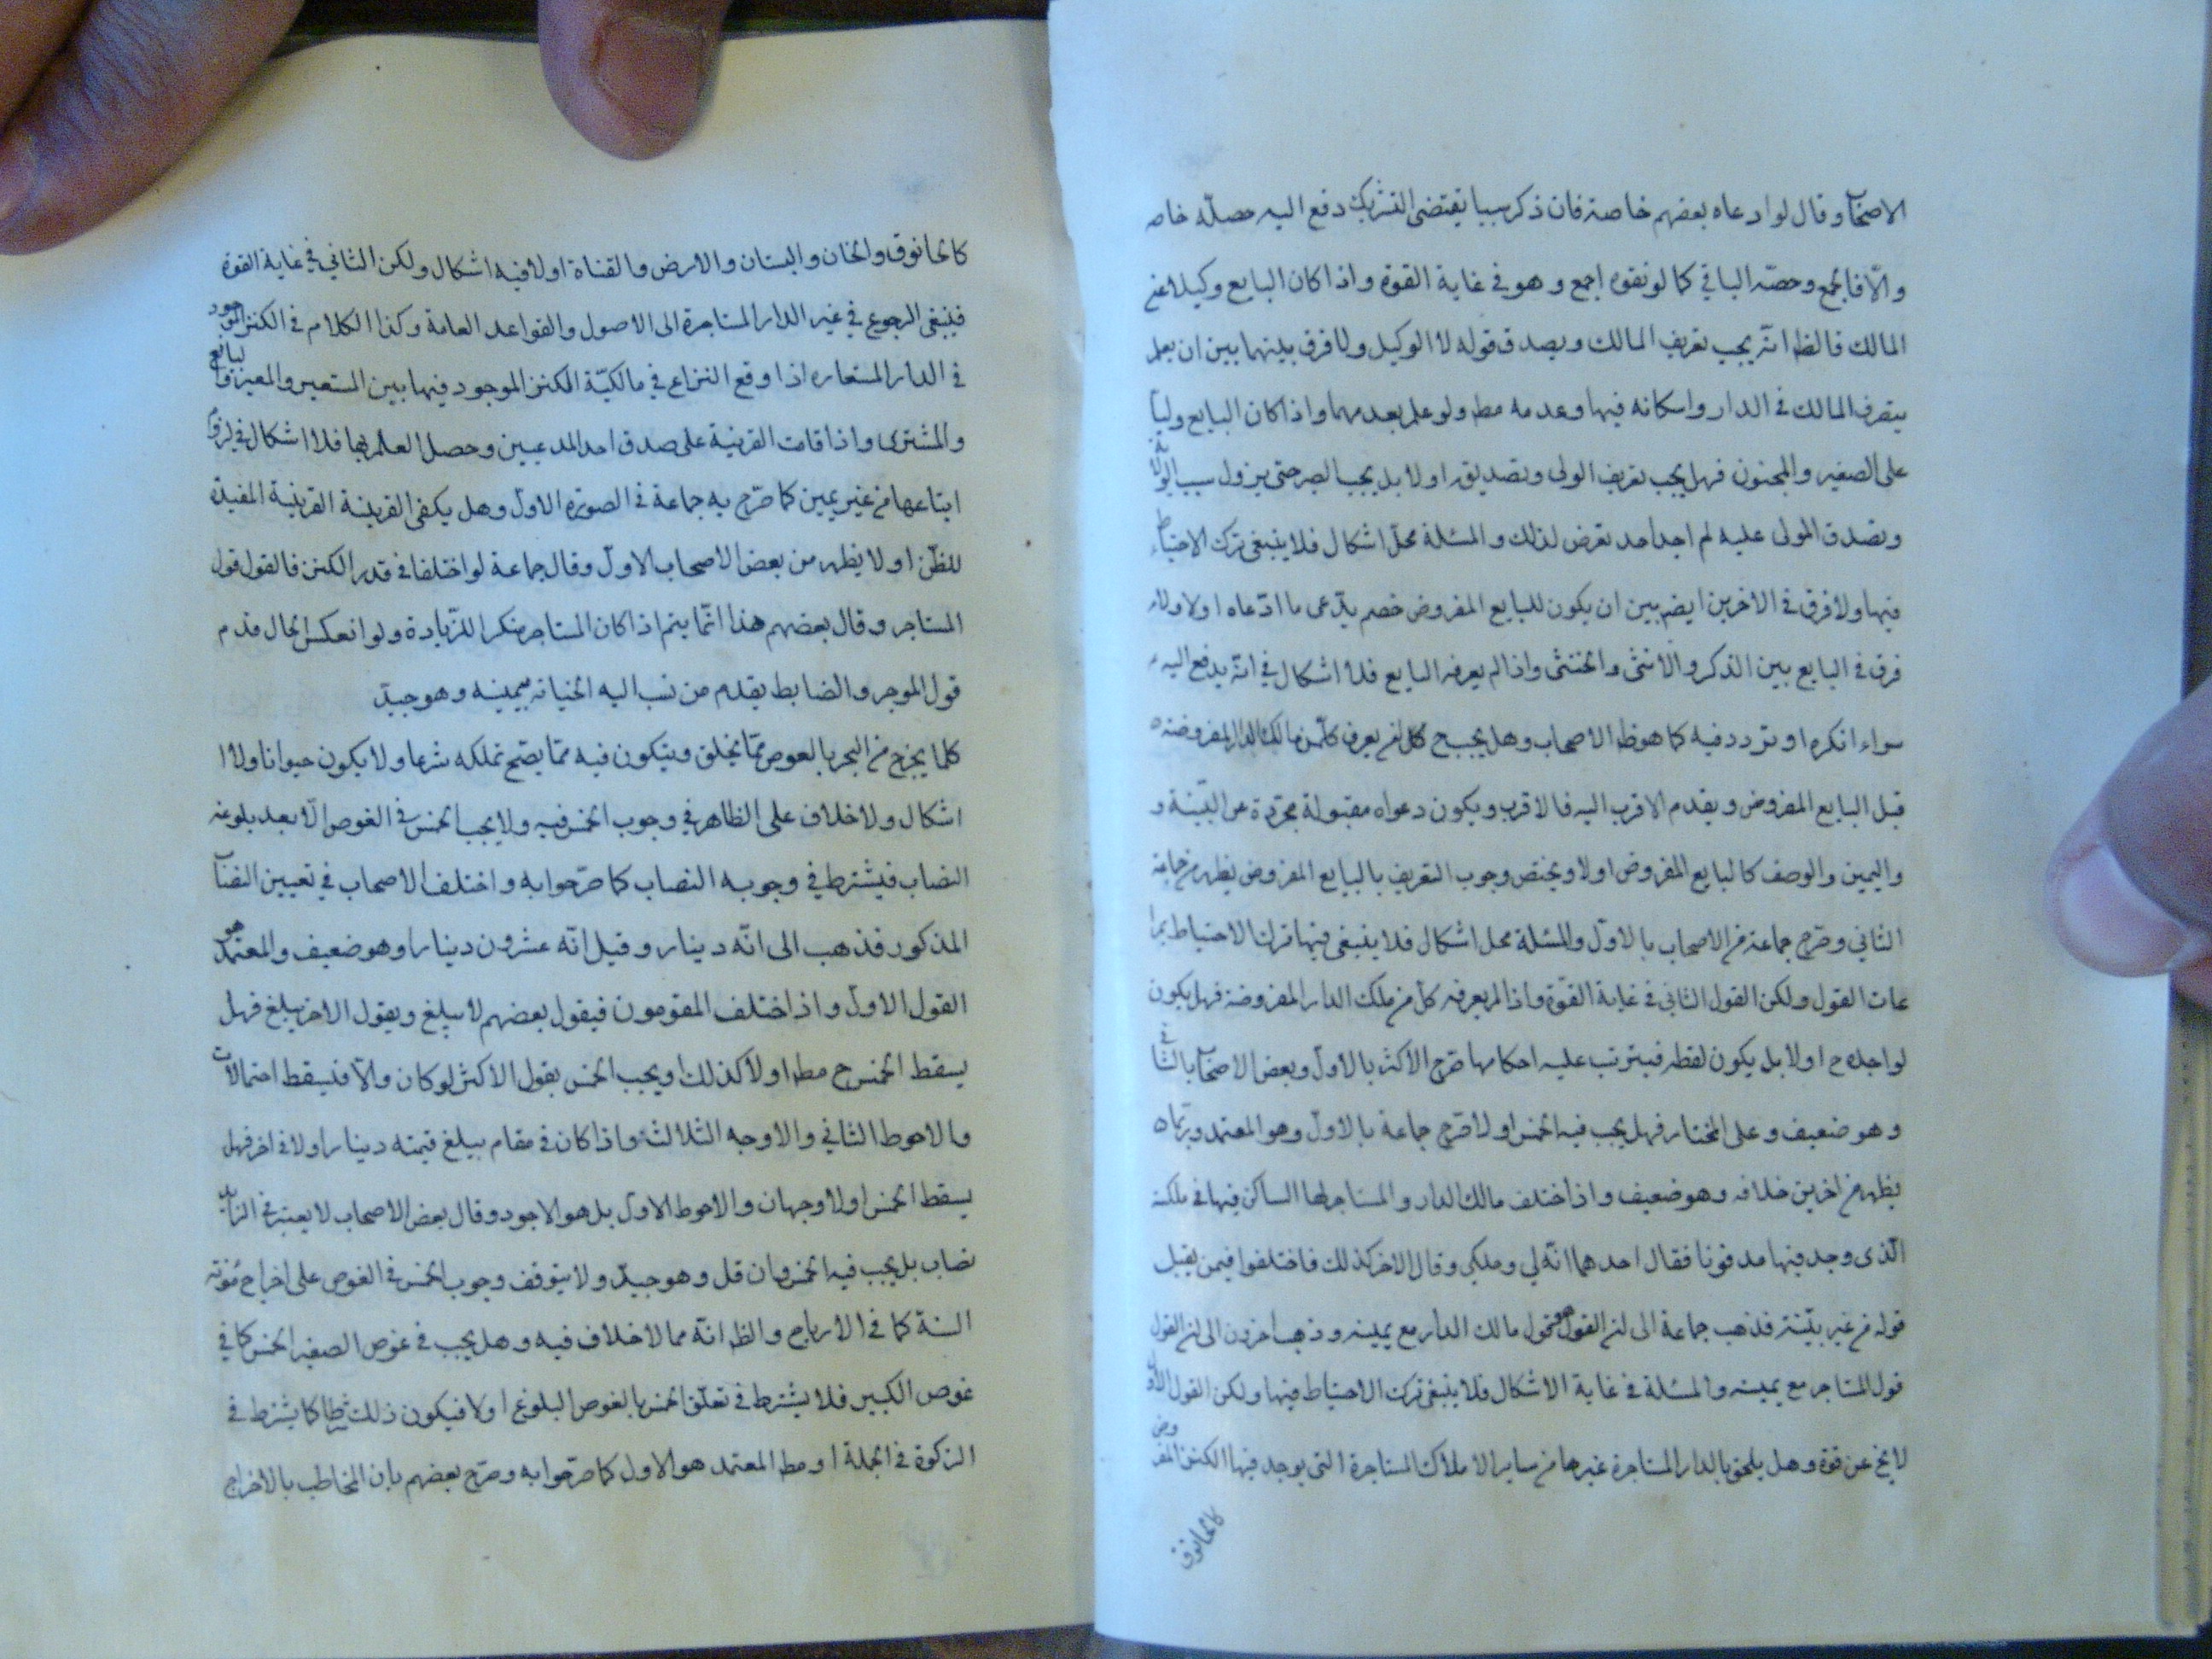 الاصحاب وقال لو ادعاه بعضهم خاصة فان ذكر سببا يقتضى التشريك دفع اليه حصلّه خاصه
والّا فالجمع وحصّه الباقي كما لو نفوه اجمع وهو في غاية القوة واذا كان البايع وكيلا عن
المالك فالظ انّه يجب تعريف المالك ويصدق قوله لا الوكيل ولا فرق بينهما بين ان يعلم
بتصرف المالك في الدار واسكانه فيها وعدمه مط ولو علم بعدمهما واذا كان البايع وليا
على الصغير والمجنون فهل يجب تعريف الولى وتصديقه او لا بل يجب الصبر حتى يزول سبب الولاية
ويصدق المولى عليه لم اجد احد تعرض لذلك والمسئلة محل اشكال فلا ينبغى ترك الاحتياط
فيها ولا فرق في الاخرين ايضا بين ان يكون للبايع المفروض خصم يدّعى ما ادّعاه او لا ولا
فرق في البايع بين الذكر والانثى والخنثى واذا لم يعرفه البايع فلا اشكال في انه يدفع اليه
سواء انكره او تردد فيه كما هو ظ الاصحاب وهل يجب ح كل من يعرف كل من مالك الدار المفروضة
قبل البايع المفروض ويقدم الاقرب اليه فالاقرب ويكون دعواه مقبولة مجردة عن البيّنة و
واليمين والوصف كالبايع المفروض او لا ويختص وجوب التعريف بالبايع المفروض يظهر من جماعة
الثاني وصرح جماعة من الاصحاب بالاول والمسئلة محل اشكال فلا ينبغى فيها ترك الاحتياط بمرا
عات القول ولكن القول الثانى في غاية القوّة واذا لم يعرفه كل من ملك الدار المفروضة فهل يكون
لواجده ح او لا بل يكون لقطه فيترتب عليه احكامها صرح الاكثر بالاول وبعض الاصحاب بالثاني
وهو ضعيف وعلى المختار فهل يجب فيه الخمس او لا صرح جماعة بالاول وهو المعتمد وربما
يظهر من اخرين خلافه وهو ضعيف واذا اختلف مالك الدار والمستاجر لها الساكن فيها في ملكية
الّذى وجد فيها مدفونا فقال احدهما انّه لي وملكى وقال الاخر كذلك فاختلفوا فيمن يقبل
قوله من غير بيّنة فذهب جماعة الى ان القول هو قول مالك الدار مع يمينه وذهب اخرون الى ان القول
قول المستاجر مع يمينه والمسئلة في غاية الاشكال فلا ينبغى ترك الاحتياط فيها ولكن القول الاول
لا يخ عن قوة وهل يلحق بالدار المستاجرة غيرها من ساير الاملاك المستاجرة التى يوجد فيها الكنز المفروض
كالحانوق
كالحانوق والخان والبستان والارض والقناة او لا فيه اشكال ولكن الثاني في غاية القوة
فينبغى الرجوع في غير الدار المستاجرة الى الاصول والقواعد العامة وكذا الكلام في الكنز الموجود
في الدار المستعاره اذا وقع النزاع في مالكيّة الكنز الموجود فيها بين المستعير والمعير والبايع
والمشترى واذا قامت القرينة على صدق احد المدعيين وحصل العلم بها فلا اشكال في لزوم
اتباعها من غير يمين كما صرّح به جماعة في الصورة الاول وهل يكفى القرينة القرينة المفيدة
للظن او لا يظهر من بعض الاصحاب الاول وقال جماعة لو اختلفا في قدر الكنز فالقول قول
المستاجر وقال بعضهم هذا انّما يتم اذا كان المستاجر منكرا للزيادة ولو انعكس الحال قدم
قول الموجر والضابط يقدم من نسب اليه الخيانه بيمينه وهو جيد
كلما يخرج من البحر بالغوص ممّا يخلق ويتكون فيه ممّا يصحّ تملكه شرعا ولا يكون حيوانا ولا ا
اشكال ولا خلاف على الظاهر في وجوب الخمس فيه ولا يجب الخمس في الغوص الّا بعد بلوغه
النصاب فيشترط في وجوبه النصاب كما صرّحوا به واختلف الاصحاب في تعيين النصاب
المذكور فذهب الى انّه دينار وقيل انّه عشرون دينارا وهو ضعيف والمعتمد هو
القول الاول واذا اختلف المقومون فيقول بعضهم لا يبلغ ويقول الاخر يبلغ فهل
يسقط الخمس ح مط او لا كذلك او يجب الخمس بقول الاكثر لو كان والّا فيسقط احتمالات
والاحوط الثاني والاوجه الثلالث واذا كان في مقام يبلغ قيمته دينارا ولا في اخر فهل
يسقط الخمس او لا وجهان والاحوط الاول بل هو الاجود وقال بعض الاصحاب لا يعتبر في الزايد
نصاب بل يجب فيه الخمس وان قل وهو جيد ولا يتوقف وجوب الخمس في الغوص على اخراج مؤنة
السنة كما في الارباح والظ انّه مما لا خلاف فيه وهل يجب في غوص الصغير الخمس كما في
غوص الكبير فلا يشترط في تعلّق الخمس بالغوص البلوغ او لا فيكون ذلك شرطا كما يشترط في
الزكوة في الجملة او مط المعتمد هو الاول كما صرّحوا به وصرّح بعضهم بان المخاطب بالاخراج